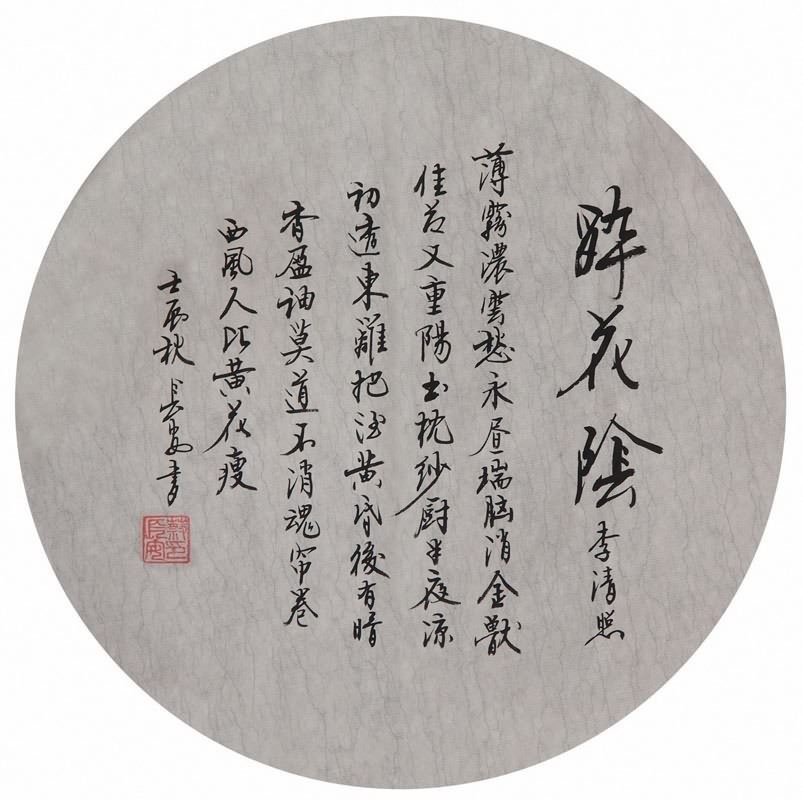 醉花陰 李清照
薄霧濃雲愁永昼瑞脑消金獸
佳节又重陽玉枕纱厨半夜凉
初透東籬把酒黄昏後有暗
香盈袖莫道不消魂帘卷
西風人比黄花瘦
壬辰秋长安书